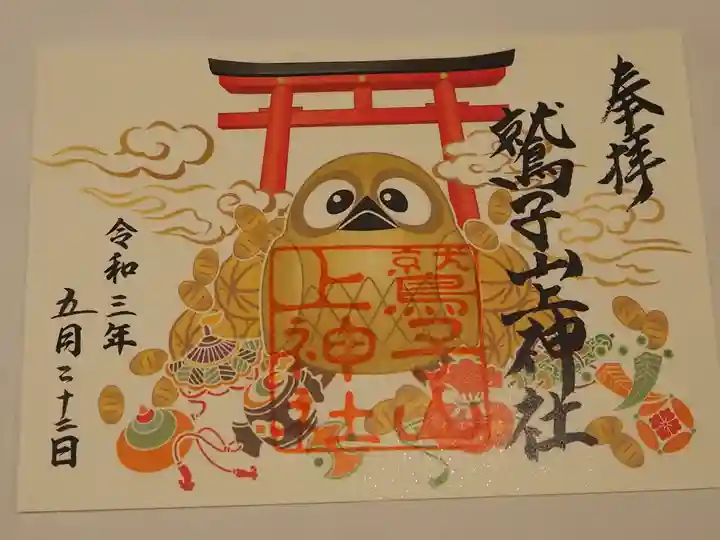 奉拝
鷲子山上神社
鷲子山
上神社
令和三年
五月二十二日